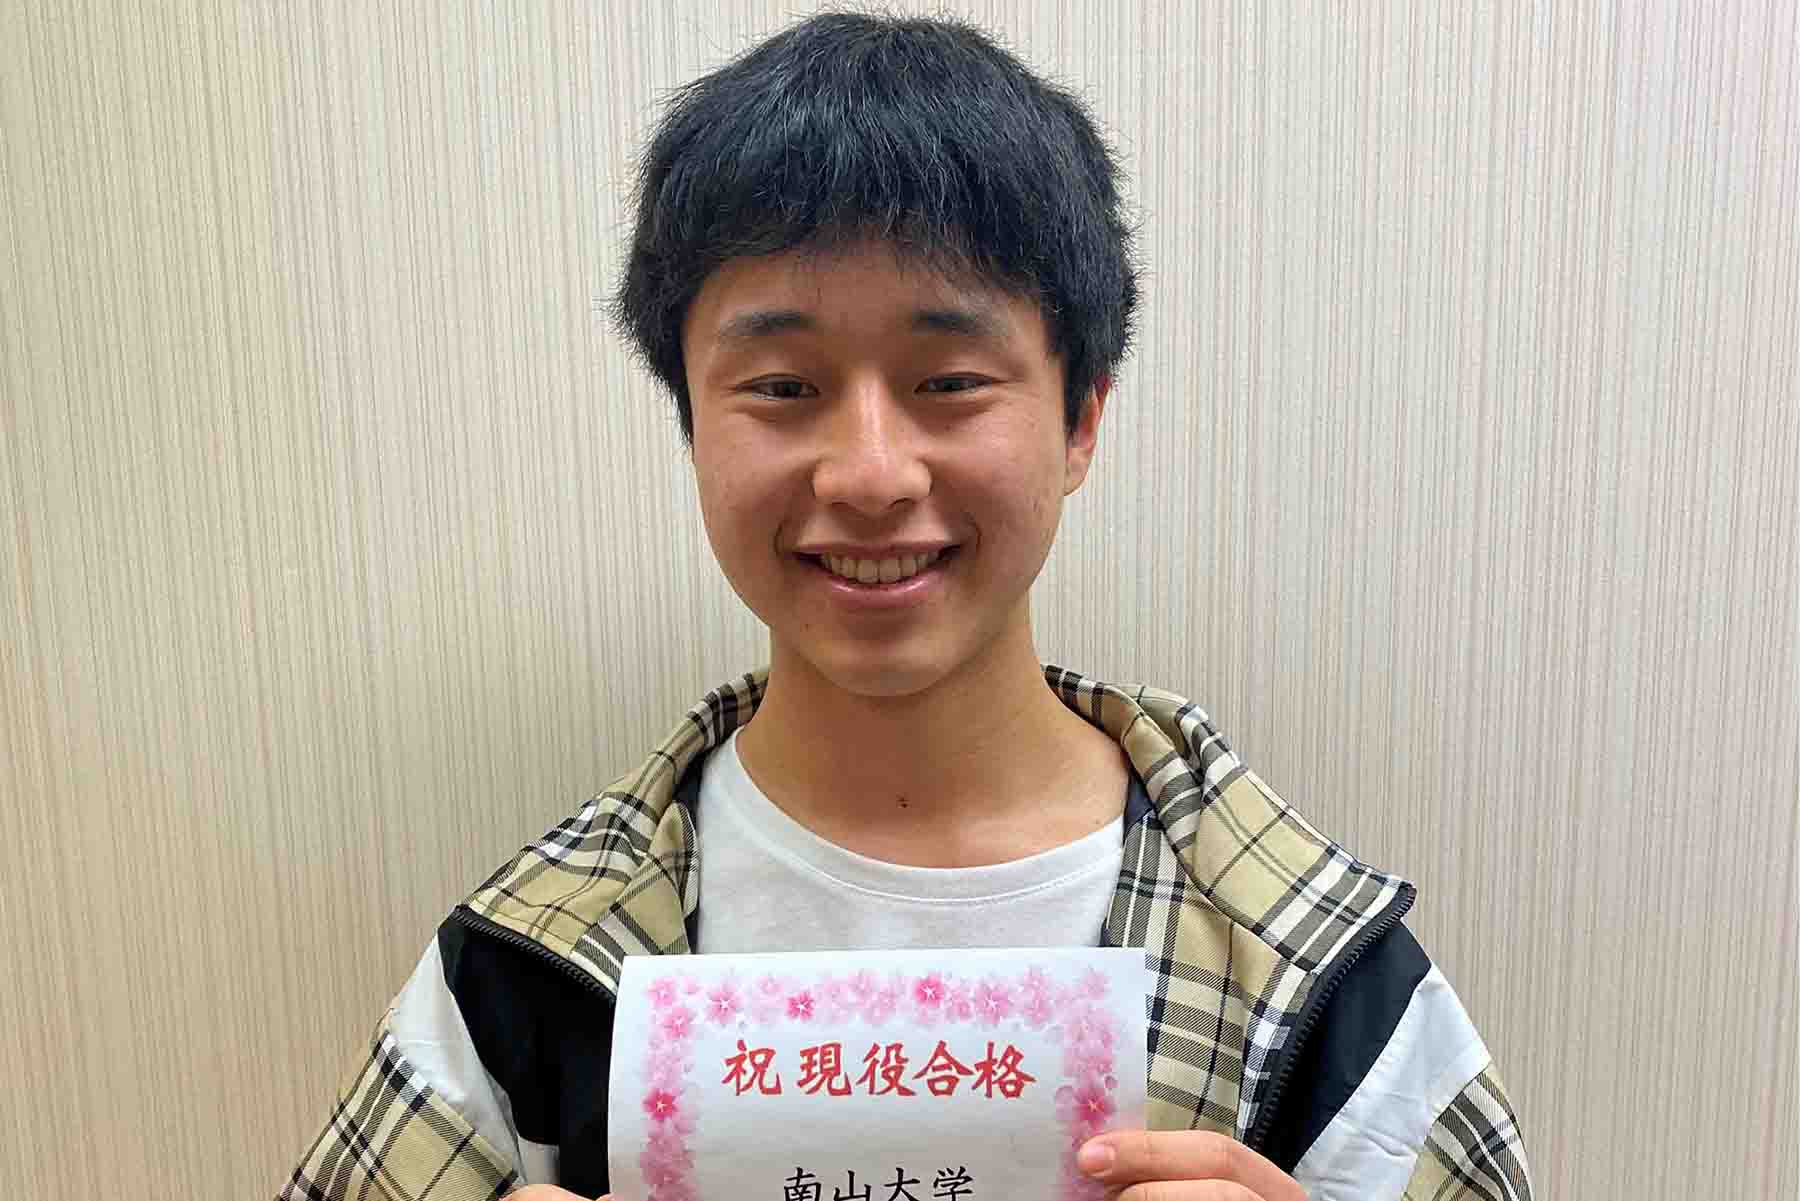 祝 現役合格
南山大学